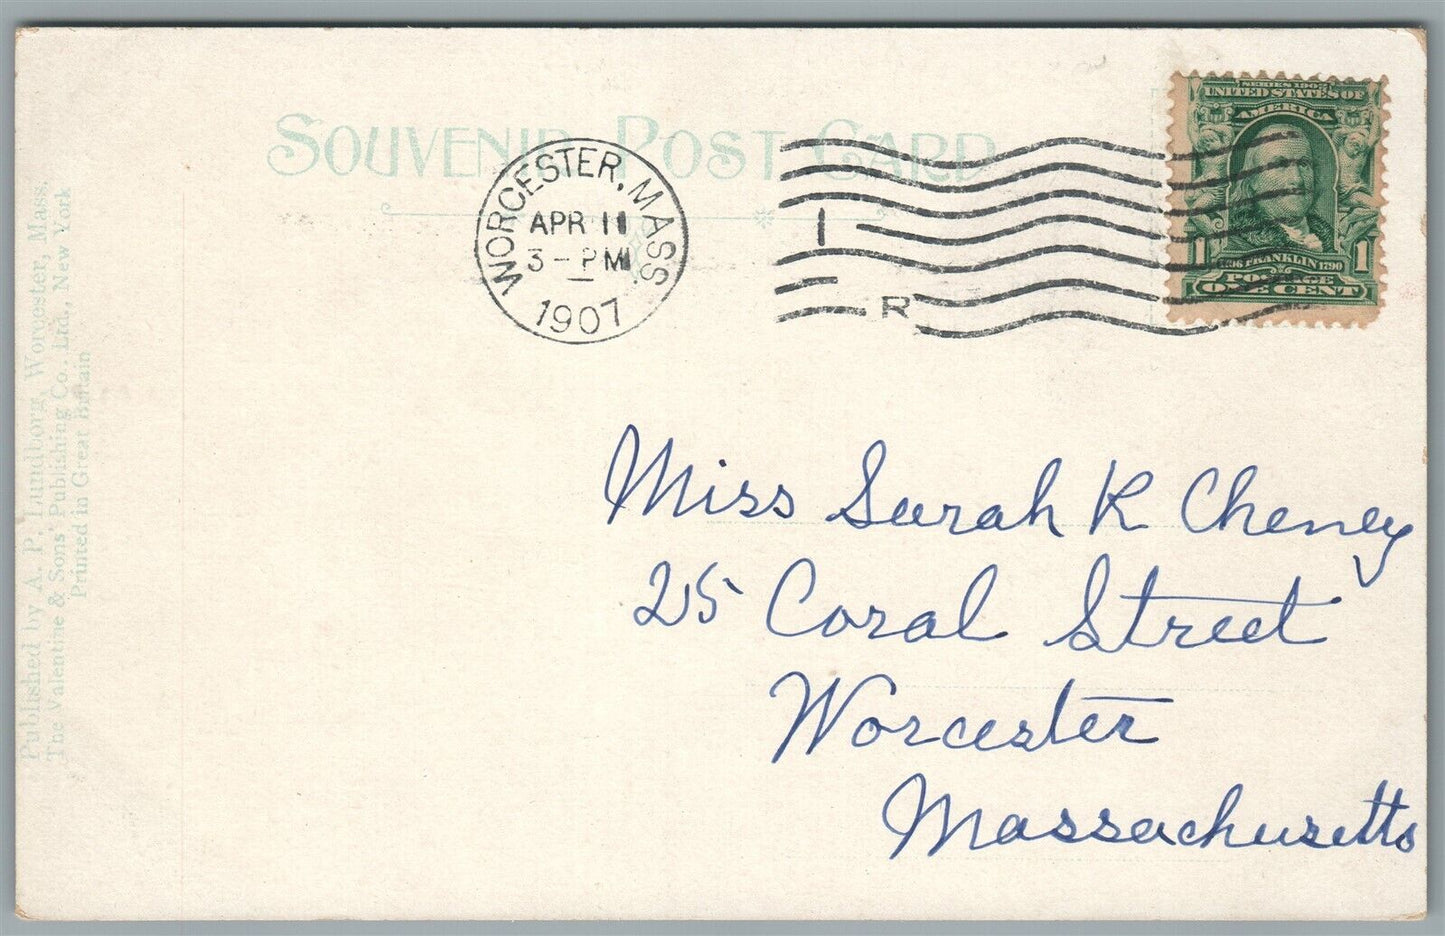 SOUVENIR POST CARD
WORCESTER, MASS.
APR 11
3 - PM
1907
1
R
SERIES 1902
UNITED STATES OF
AMERICA
1 1
1706 FRANKLIN 1790
POSTAGE
ONE CENT
Miss Sarah R Cheney
25 Coral Street
Worcester
Massachusetts
Published by A. P. Lundborg, Worcester, Mass.
The Valentine & Sons' Publishing Co., Ltd., New York
Printed in Great Britain